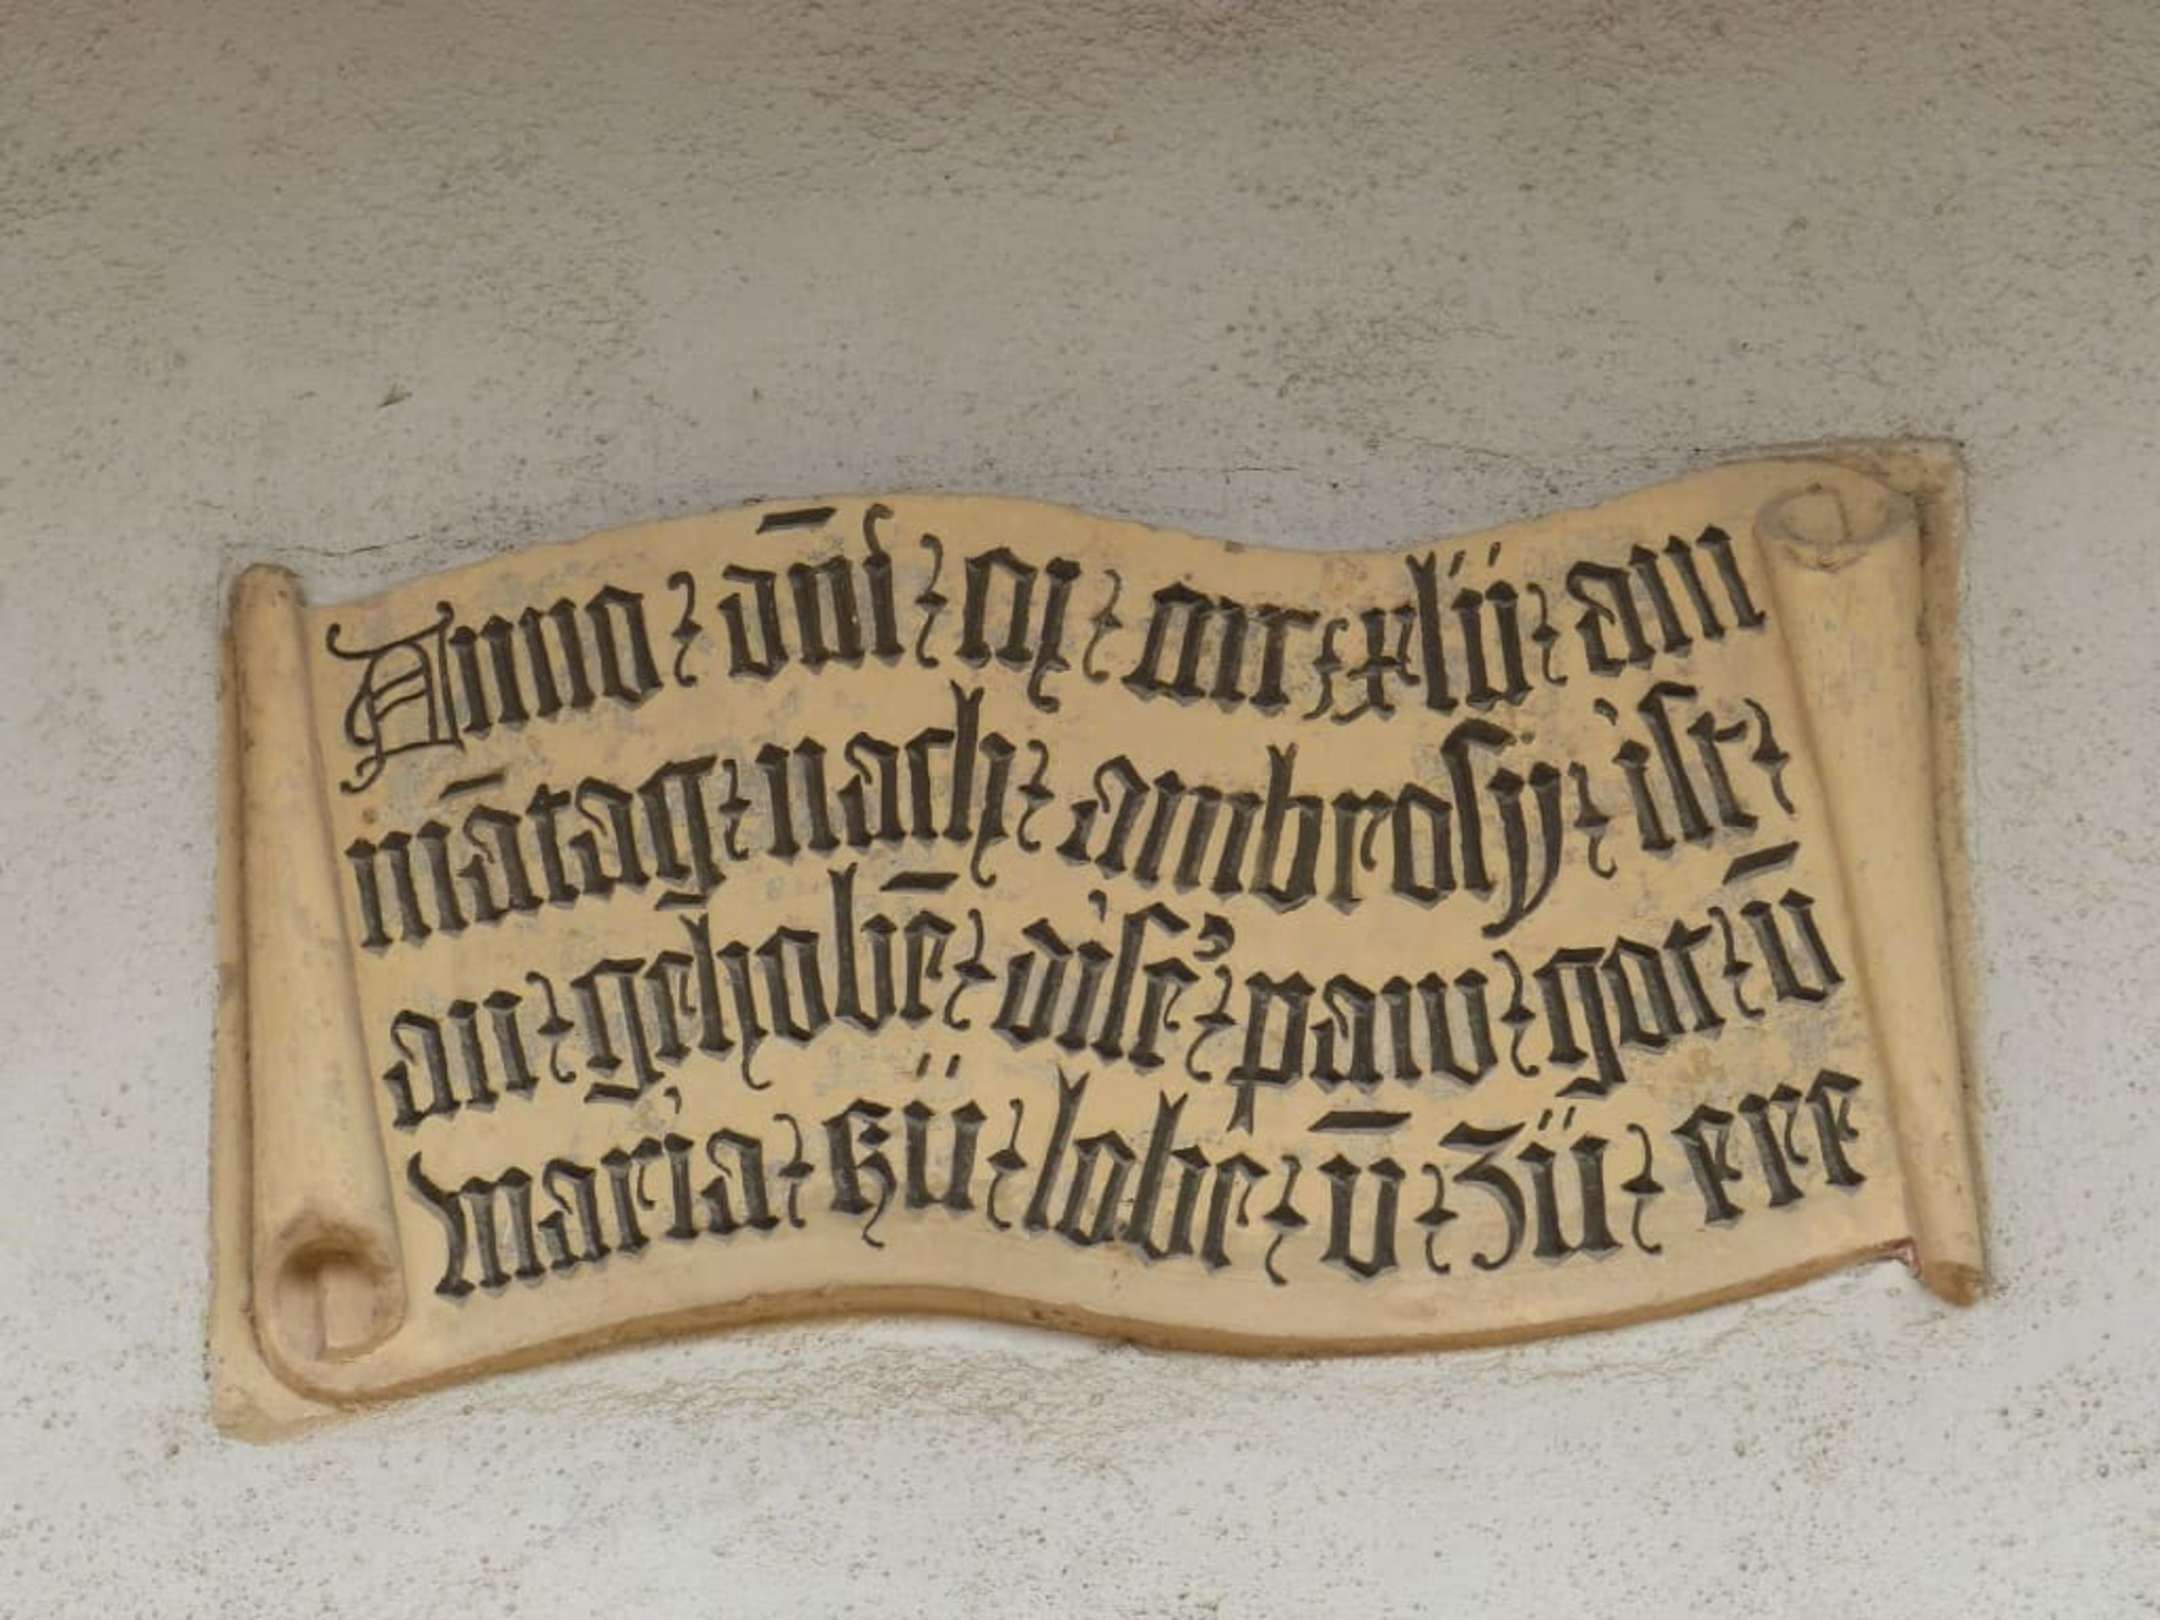 Anno dn̄i m cccc xlii am
mātag nach ambrosy ist
an gehobē diseʾ paw got uñ
maria zü lobe uñ zü ere